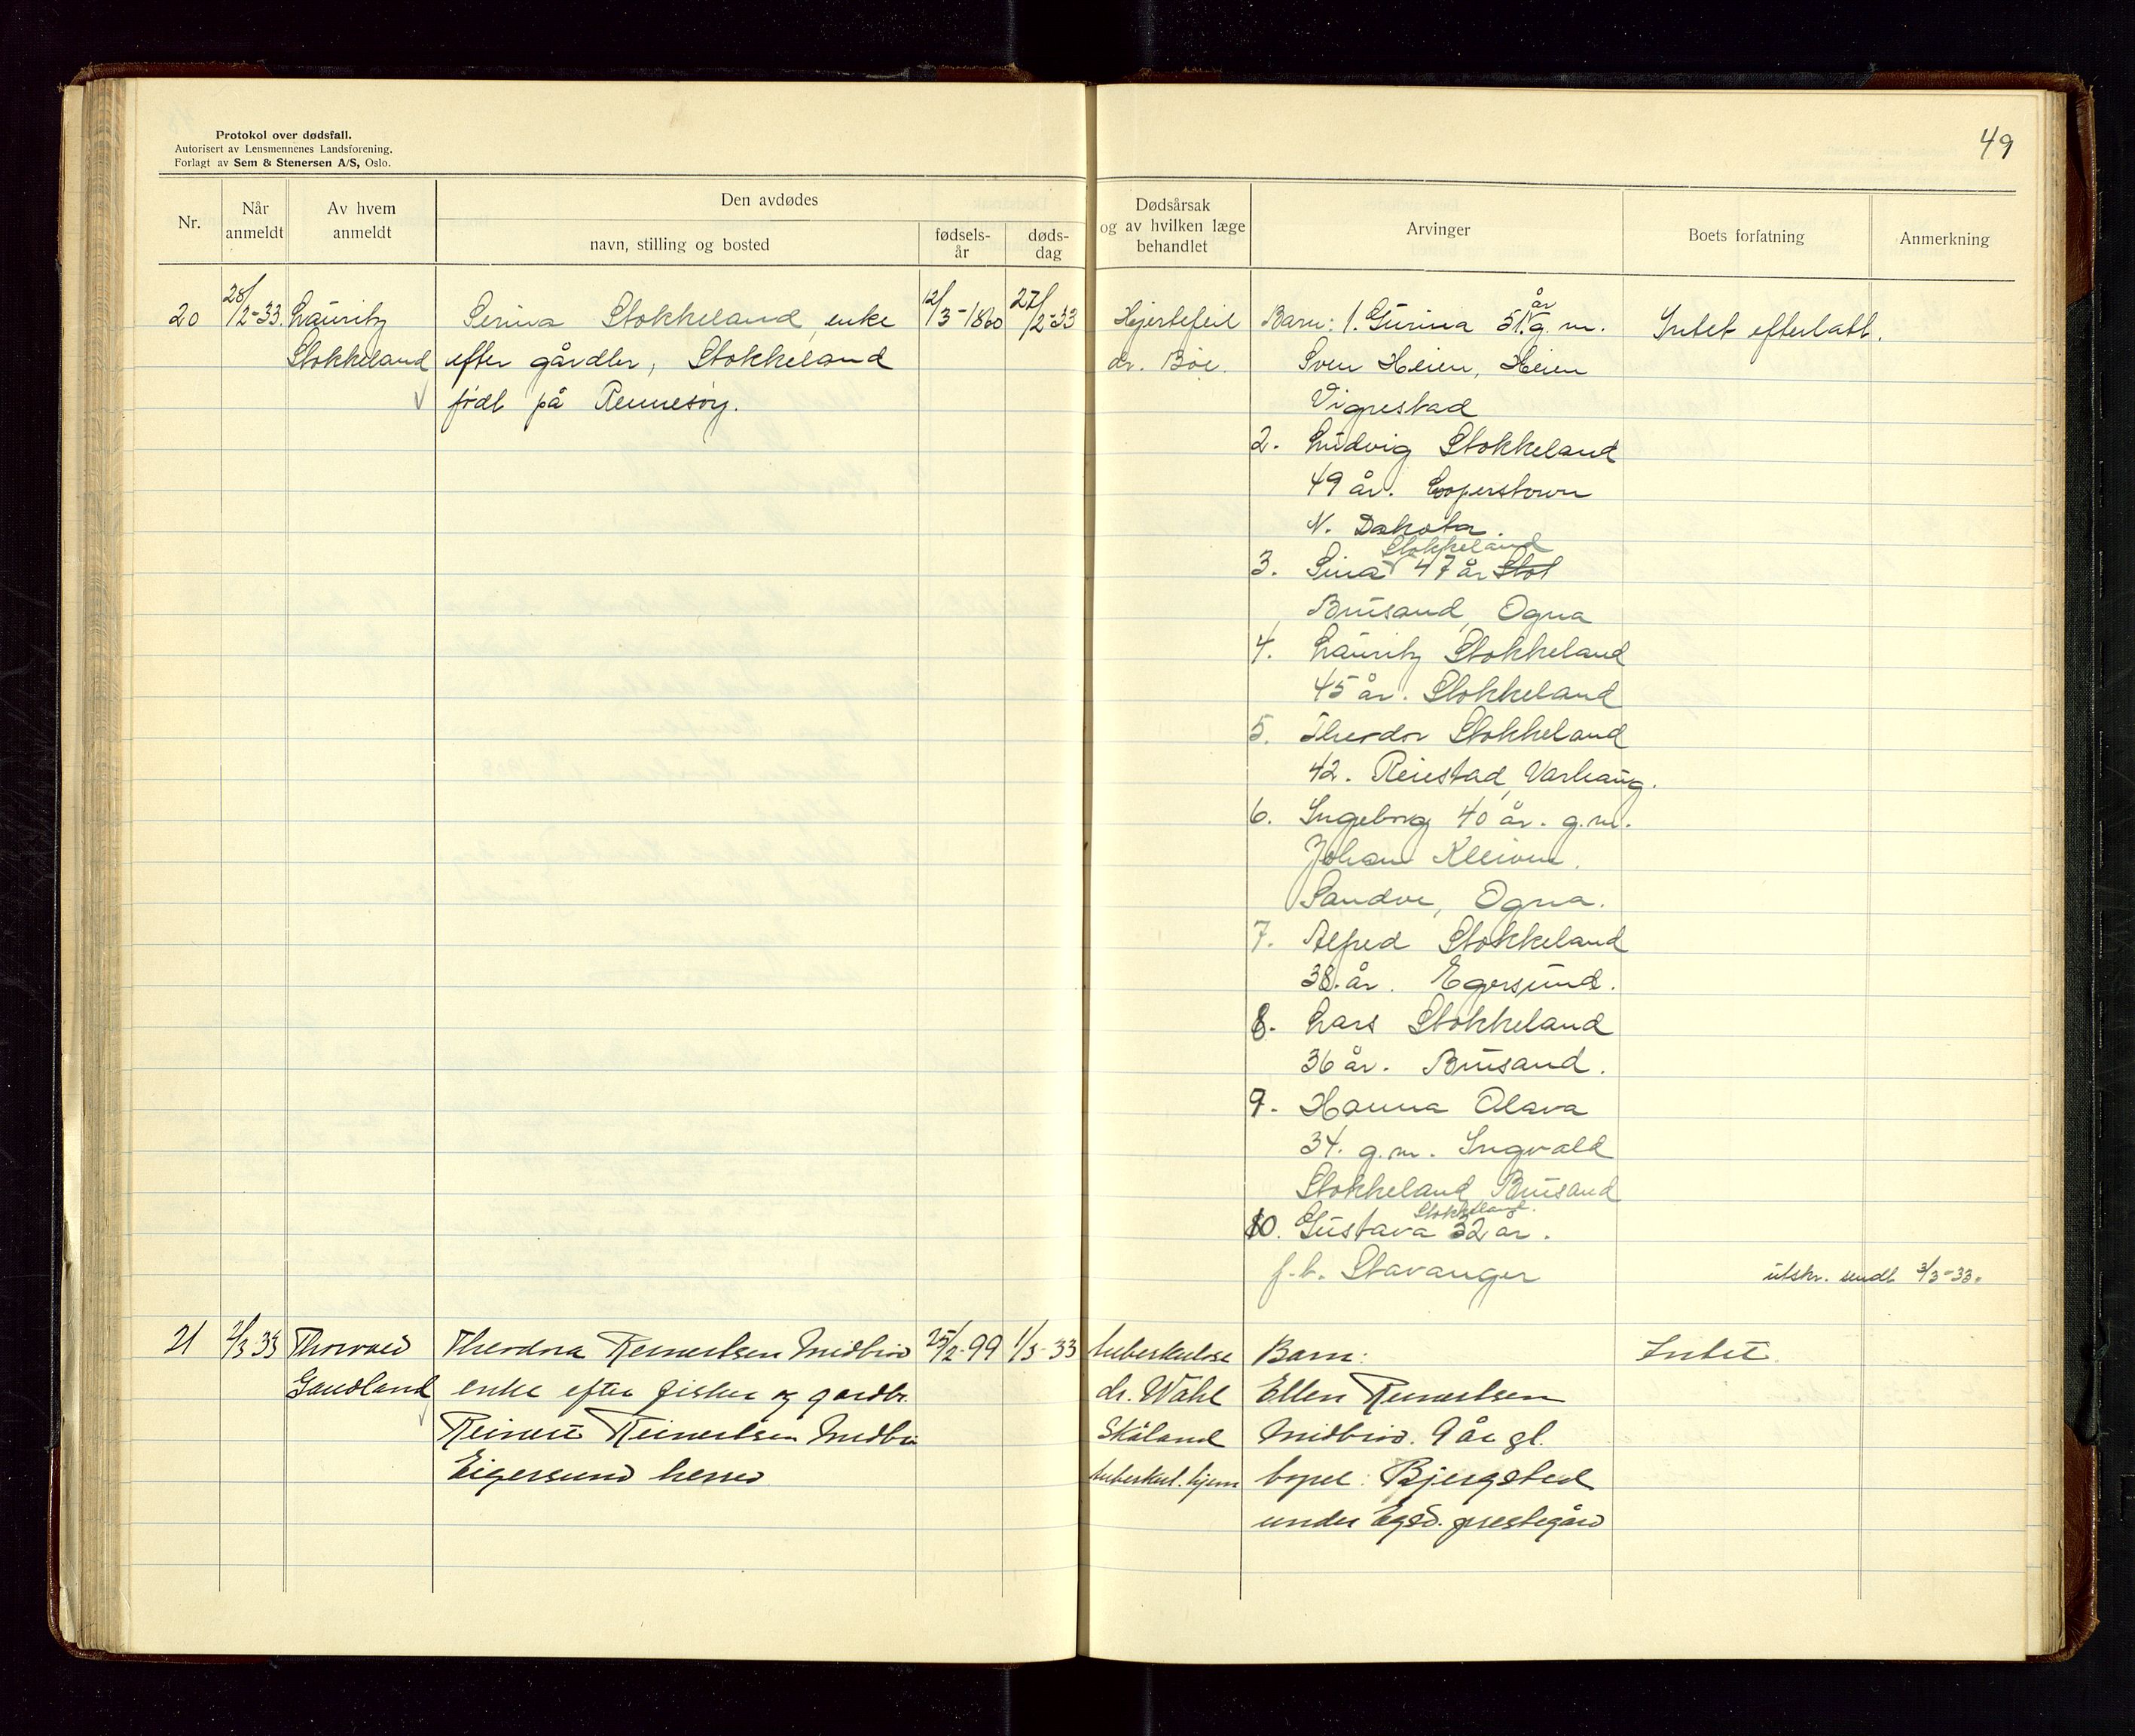 Protokol over dødsfall.
Autorisert av Lensmennenes Landsforening.
Forlagt av Sem & Stenersen A/S, Oslo.
49
Nr.
Når anmeldt
Av hvem anmeldt
Den avdødes
navn, stilling og bosted
fødsels-år
døds-dag
Dødsårsak og av hvilken læge behandlet
Arvinger
Boets forfatning
Anmerkning
20
28/2-33.
Lauritz
Stokkeland
Serina Stokkeland, enke
efter gårdbr, Stokkeland
født på Rennesøy.
12/3-1860
27/2-33
Hjertefeil
dr. Bøe.
Barn: 1. Gurina 51 år g. m.
Sven Heien, Heien
Vigrestad
2. Ludvig Stokkeland
49 år. Cooperstown
N. Dakota.
3. Sina Stokkeland 47 år Stok
Brusand, Ogna
4. Lauritz Stokkeland
45 år. Stokkeland
5. Theodor Stokkeland
42. Reiestad, Varhaug.
6. Ingeborg 40 år. g.m.
Johan Kleiven.
Sandve, Ogna.
7. Alfred Stokkeland
38 år. Egersund.
8. Lars Stokkeland
36 år. Brusand.
9. Hanna Olava
34. g.m. Ingvald
Stokkeland, Brusand
10. Gustava Stokkeland. 32 år.
f.t. Stavanger
Intet efterlatt.
utskr. sendt 3/3-33.
21
2/3 33
Thorvald
Gaudland
Theodora Reinertsen Midbrød
enke efter fisker og gardbr.
Reinert Reinertsen Midbrø
Eigersund herred
25/2-99
1/3-33
tuberkulose
dr. Wahl
Skåland
tuberkul. hjem
Barn:
Ellen Reinertsen
Midbrød. 9 år gl.
bopel: Bjergsted
under Egsd. prestegård
Intet